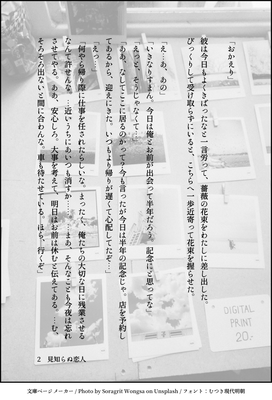 「おかえり」
彼は今日もよくきばったなと一言労って、薔薇の花束をわたしに差し出した。
びっくりして受け取らずにいると、こちらへ一歩近寄って花束を握らせた。
「え…あ、あの」
「いきなりすまん。今日は俺とお前が出会って半年だろう。記念にと思ってな」
「えっと、そうじゃなくて…」
「ああ、なしてここに居るのかって?今も言ったが今日は半年の記念じゃ。店を予約し
てあるから、迎えにきた。いつもより帰りが遅くて心配してたぞ…」
「えっ…」
「何やら帰り際に仕事を任されたらしいな。まったく、俺たちの大切な日に残業させる
なんて許せんな。…近いうちにあいつも消すか……まあ、そんなことも今夜は忘れ
させてやる。ああ、安心しろ。大事を考えて、明日はお前は休むと伝えてある。…む、
そろそろ出ないと間に合わんな。車も待たせている。ほら、行くぞ」
2 見知らぬ恋人
DIGITAL
PRINT
20.-
文庫ページメーカー / Photo by Soragrit Wongsa on Unsplash / フォント:むつき現代明朝